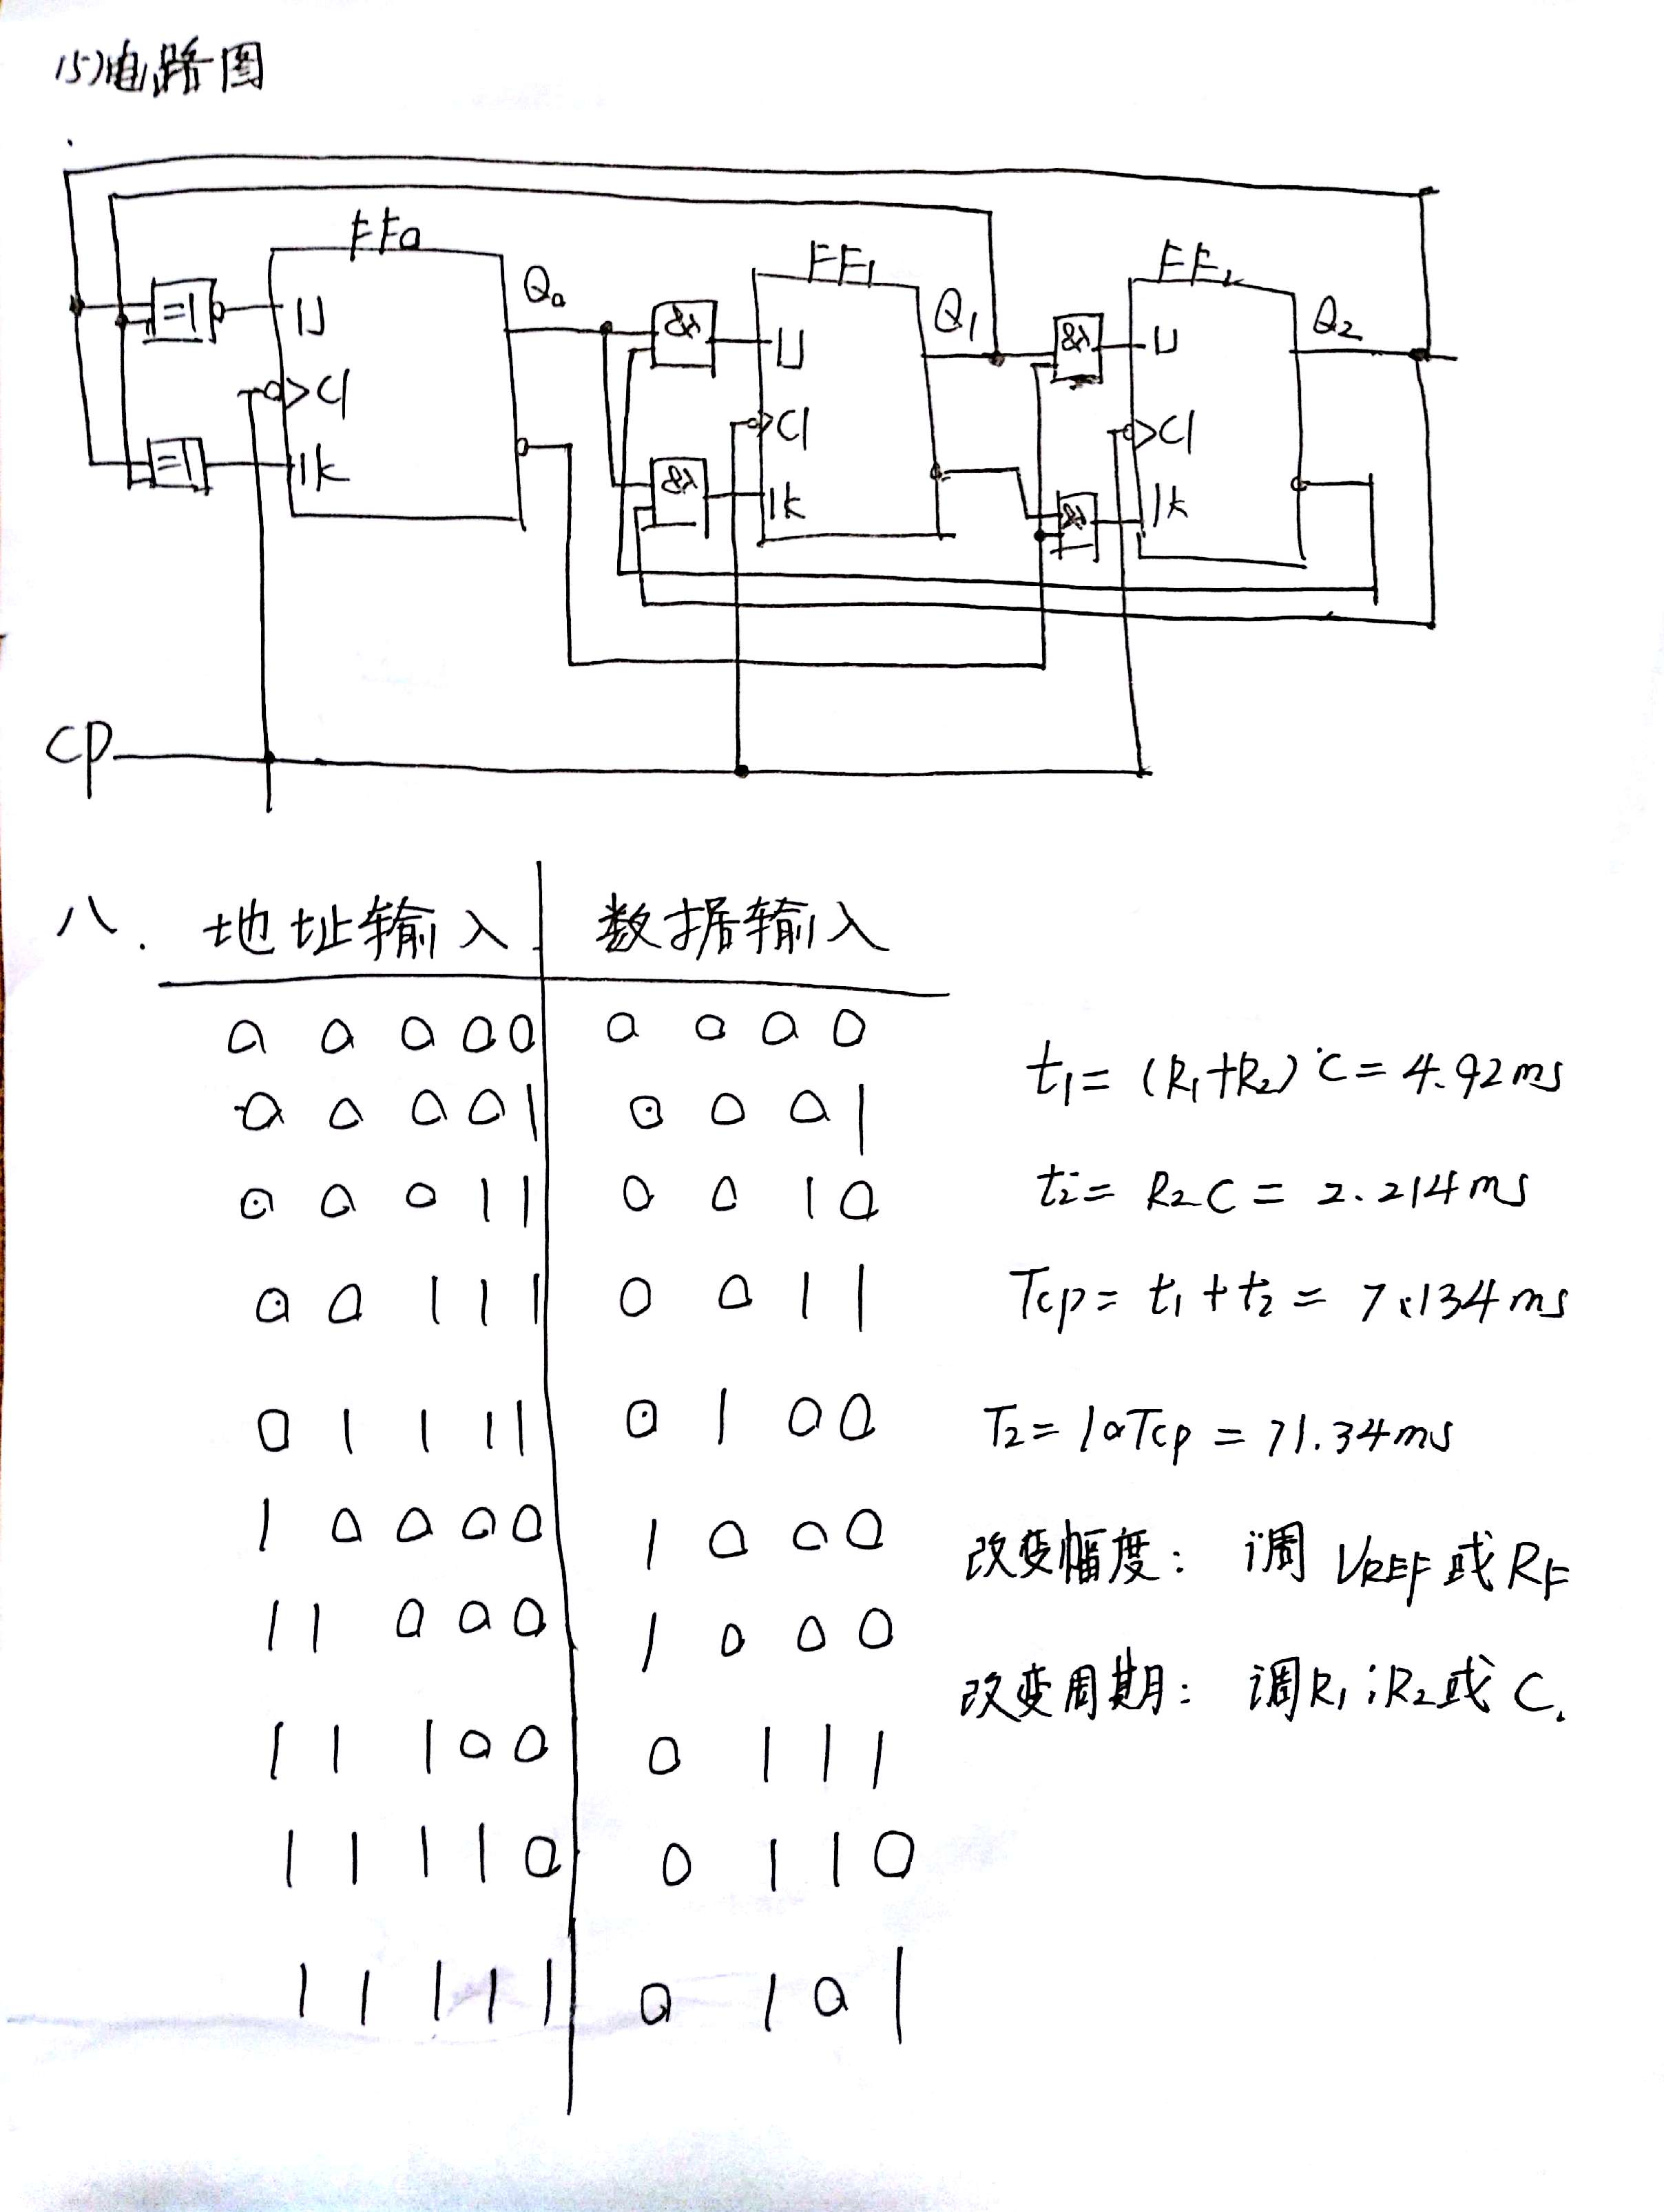 (5)电路图
FF0 FF1 FF2
Q0 Q1 Q2
=1 1J & 1J & 1J
C1 C1 C1
=1 1K & 1K & 1K
CP
八. 地址输入 数据输入
0 0 0 0 0 0 0 0 0
0 0 0 0 1 0 0 0 1
0 0 0 1 1 0 0 1 0
0 0 1 1 1 0 0 1 1
0 1 1 1 1 0 1 0 0
1 0 0 0 0 1 0 0 0
1 1 0 0 0 1 0 0 0
1 1 1 0 0 0 1 1 1
1 1 1 1 0 0 1 1 0
1 1 1 1 1 0 1 0 1
t1 = (R1+R2)·C = 4.92ms
t2 = R2C = 2.214ms
Tcp = t1 + t2 = 7.134ms
T2 = 10Tcp = 71.34ms
改变幅度: 调 VREF 或 RF
改变周期: 调R1;R2或 C.